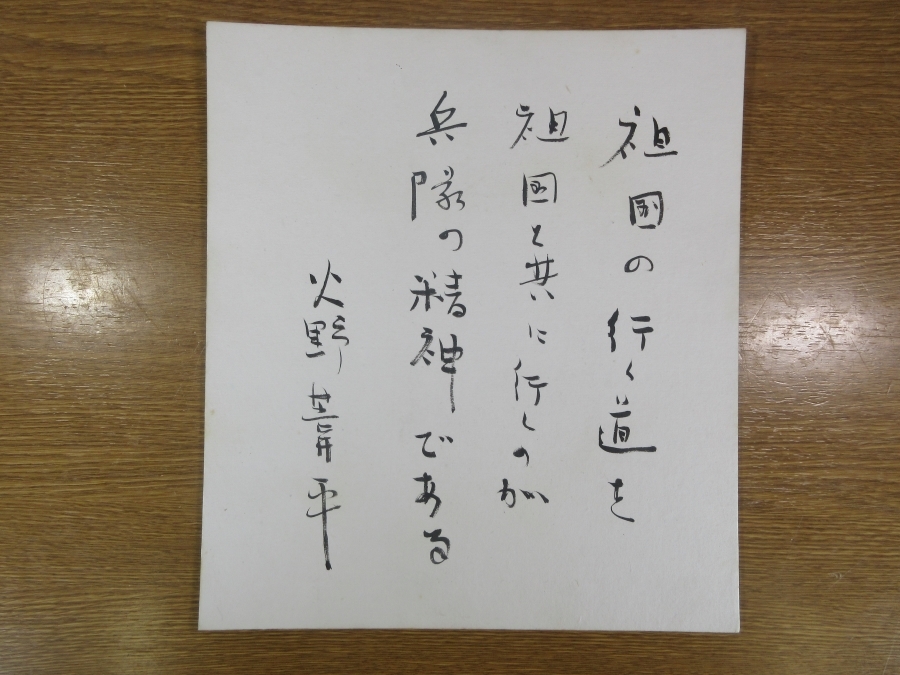 祖国の行く道を
祖国と共に行くのが
兵隊の精神である
火野葦平